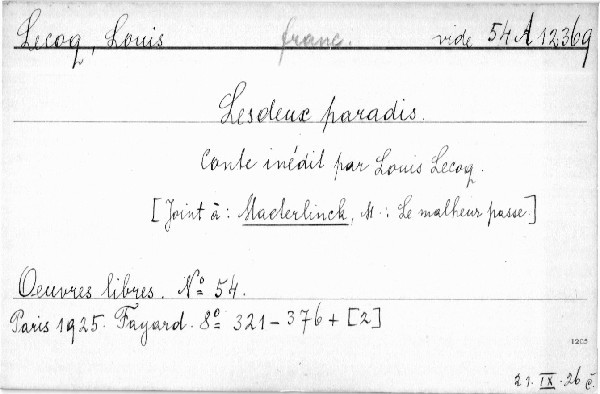 Lecoq, Louis franc. vide 54 A 12369
Les deux paradis.
Conte inédit par Louis Lecoq.
[Joint à : Maeterlinck, M.: Le malheur passe.]
Oeuvres libres. No 54.
Paris 1925. Fayard. 8o 321-376 + [2]
1205
21. IX. 26 č.